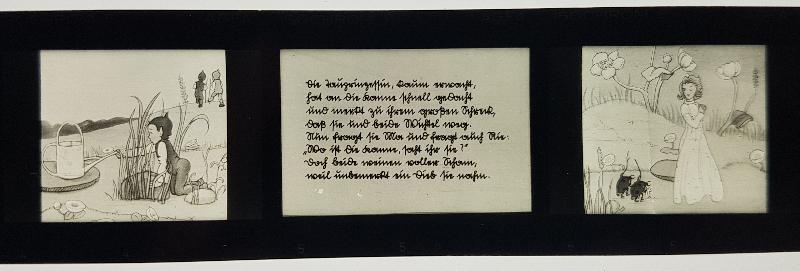 Die Tauprinzessin, kaum erwacht,
hat an die Kanne schnell gedacht
und merkt zu ihrem großen Schreck,
daß sie und beide Wichtel weg.
Nun fragt sie Mo und fragt auch Nie:
„Wo ist die Kanne, saht ihr sie?"
Doch beide weinen voller Scham,
weil unbemerkt ein Dieb sie nahm.